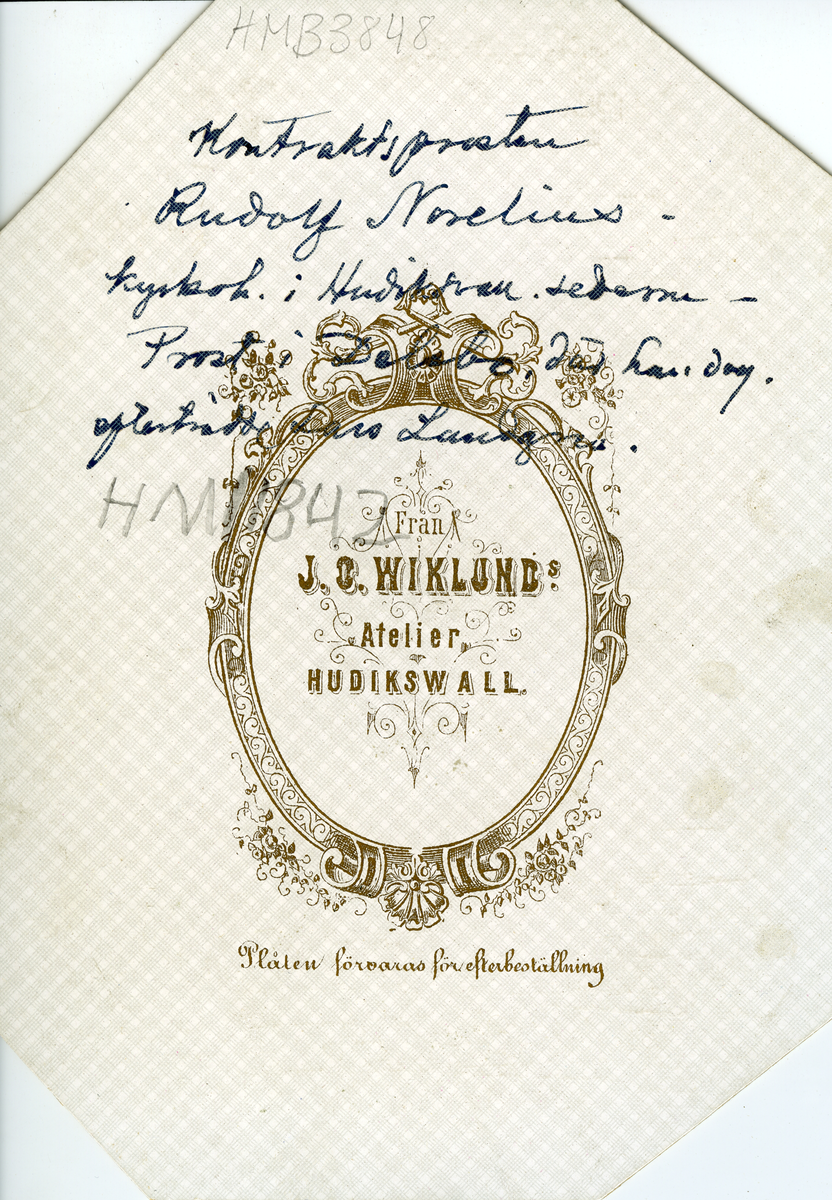 HMB3848
Kontraktsprosten
Rudolf Norelius -
kyrkoh. i Hudiksvall. sederm -
Prost i Delsbo, där han dog.
efterträdde Lars Landgren.
HMM842
Från
J. O. WIKLUNDs
Atelier
HUDIKSWALL.
Plåten förvaras för efterbeställning